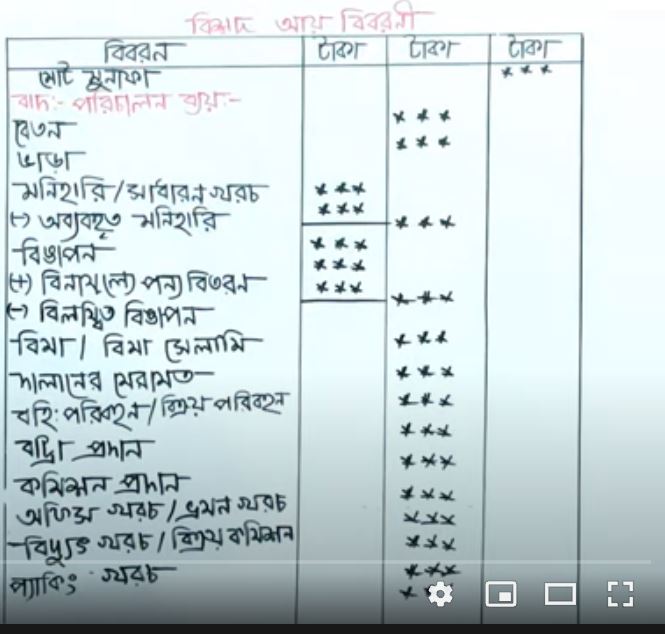 বিশদ আয় বিবরনী
বিবরন টাকা টাকা টাকা
মোট মুনাফা ***
বাদ:- পরিচালন ব্যয়:-
বেতন ***
ভাড়া ***
মনিহারি/সাধারন খরচ ***
(-) অব্যবহৃত মনিহারি *** ***
বিজ্ঞাপন ***
(+) বিনামূল্যে পন্য বিতরন ***
(-) বিলম্বিত বিজ্ঞাপন *** ***
বিমা / বিমা সেলামি ***
দালানের মেরামত ***
বহি:পরিবহন/বিক্রয় পরিবহন ***
বাট্টা প্রদান ***
কমিশন প্রদান ***
অফিস খরচ/ভ্রমন খরচ ***
বিদ্যুৎ খরচ/বিক্রয় কমিশন ***
প্যাকিং খরচ ***